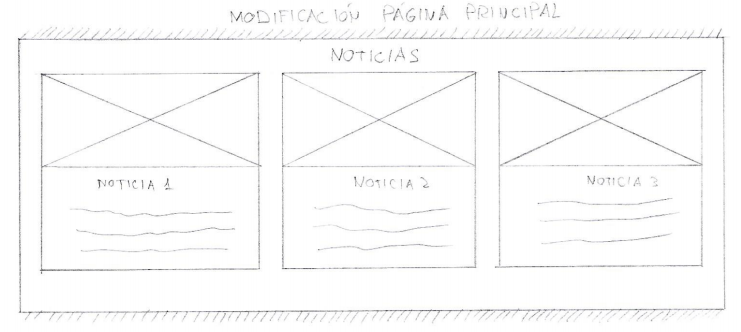 MODIFICACIÓN PÁGINA PRINCIPAL
NOTICIAS
NOTICIA 1
NOTICIA 2
NOTICIA 3